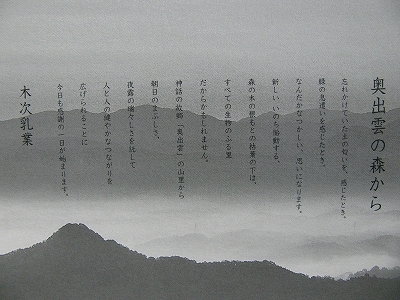 奥出雲の森から
忘れかけていた土の匂いを、感じたとき。
緑の息遣いを感じたとき。
なんだかなつかしい、思いになります。
新しいいのち胎動する、
森の木の根もとの枯葉の下は、
すべての生物のふる里
だからかもしれません。
神話の故郷「奥出雲」の山里から
朝日のまぶしさ、
夜露の瑞々しさを託して
人と人の健やかなつながりを
広げられることに
今日も感謝の一日が始まります。
木次乳業